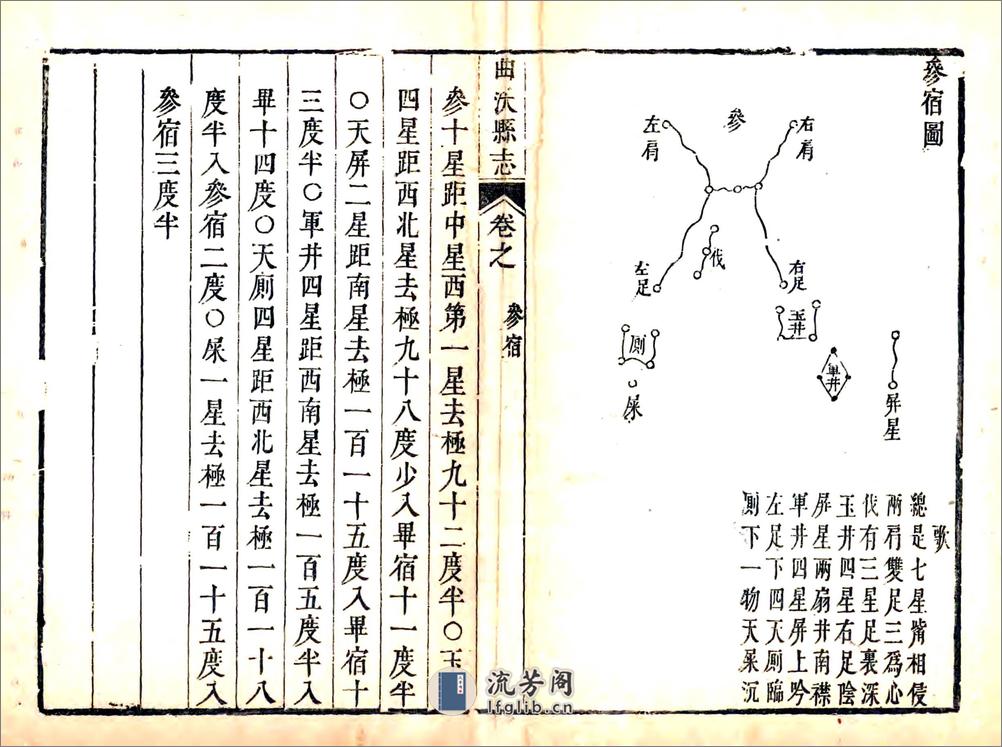 參宿圖
參
右肩
左肩
伐
右足
左足
玉井
軍井
屏星
厠
屎
歌
緫是七星觜相侵
兩肩雙足三爲心
伐有三星足裏深
玉井四星右足陰
屏星兩扇井南襟
軍井四星屏上吟
左足下四天厠臨
厠下一物天屎沉
曲沃縣志
卷之
參宿
參十星距中星西第一星去極九十二度半○玉
四星距西北星去極九十八度少入畢宿十一度半
○天屏二星距南星去極一百一十五度入畢宿十
三度半○軍井四星距西南星去極一百五度半入
畢十四度○天厠四星距西北星去極一百一十八
度半入參宿二度○屎一星去極一百一十五度入
參宿三度半
流芳阁
lfglib.cn